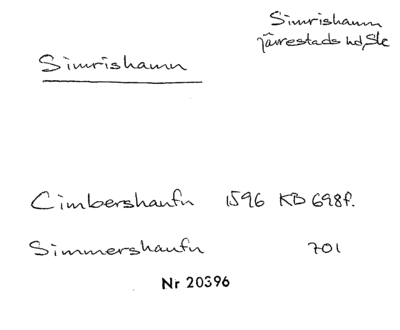 Simrishamn
järrestads hd, Sk
Simrishamn
Cimbershaufn 1596 KB 698f.
Simmershaufn 701
Nr 20396